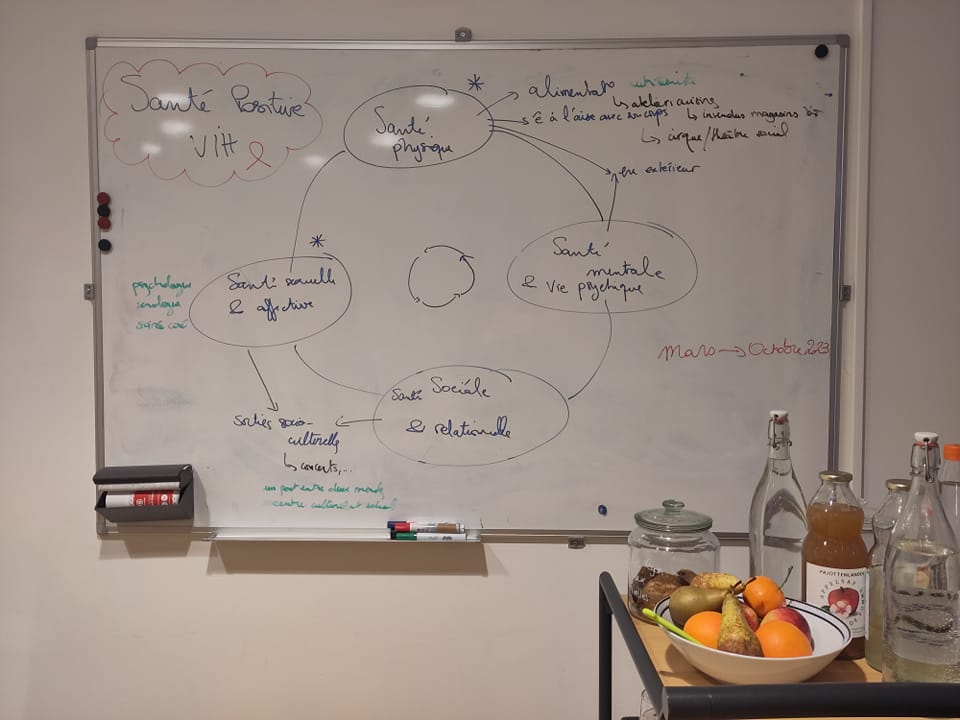 Santé Positive
VIH
*
Santé
physique
alimentat°
↳ ateliers cuisines
→ ê à l'aise avec son corps
↳ invendus magasins bio
↳ cirque/théâtre social
→ ... extérieur
Santé
mentale
& vie psychique
*
Santé sexuelle
& affective
psychologue
sexologue
soirée ciné
Mars → Octobre 2023
Santé Sociale
& relationnelle
sorties socio-
culturelle
↳ concerts,...
un pont entre deux mondes
centre culturel et social
PAJOTTENLANDER
APPELSAP